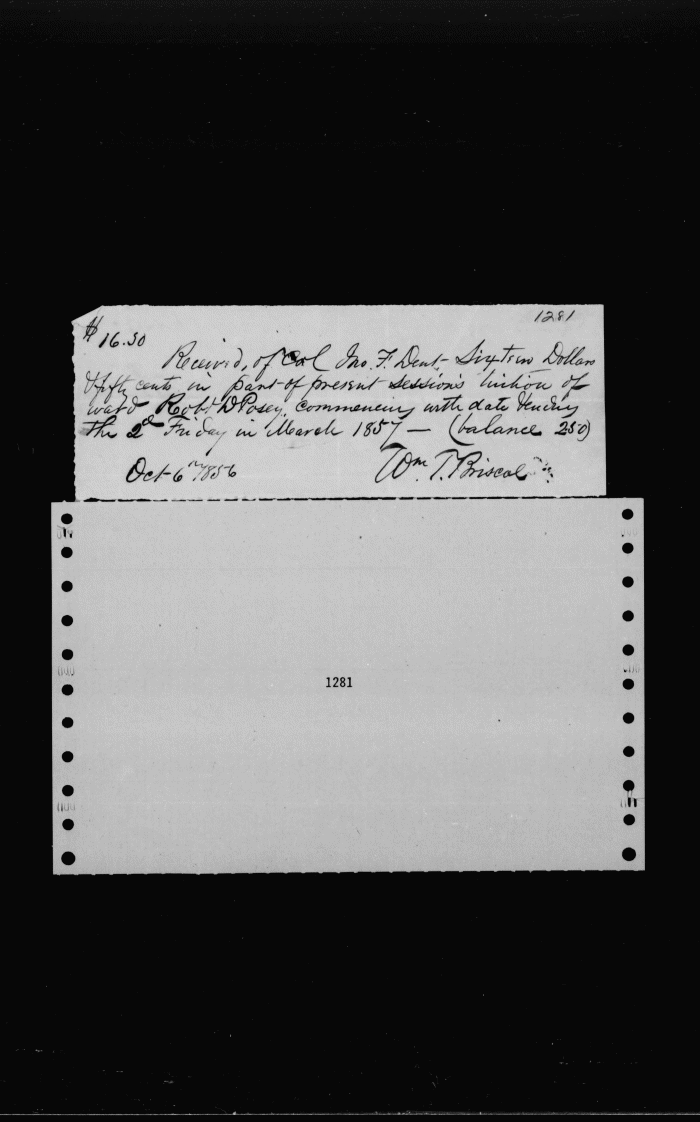 1281
$16.50
Received, of Col Jno. F. Dent Sixteen Dollars
& fifty cents in part of present session's tuition of
ward Robt. D Posey, commencing with date & ending
the 2d Friday in March 1857 — (balance 250)
Oct 6th 1856 Wm. T. Briscoe
1281